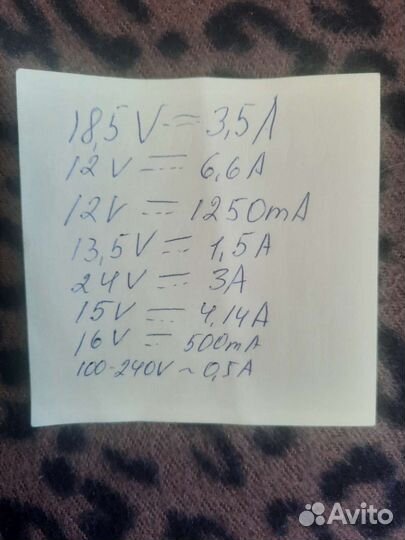 18,5V ⎓ 3,5A
12V ⎓ 6,6A
12V ⎓ 1250mA
13,5V ⎓ 1,5A
24V ⎓ 3A
15V ⎓ 4,14A
16V ⎓ 500mA
100-240V ~ 0,5A
Avito